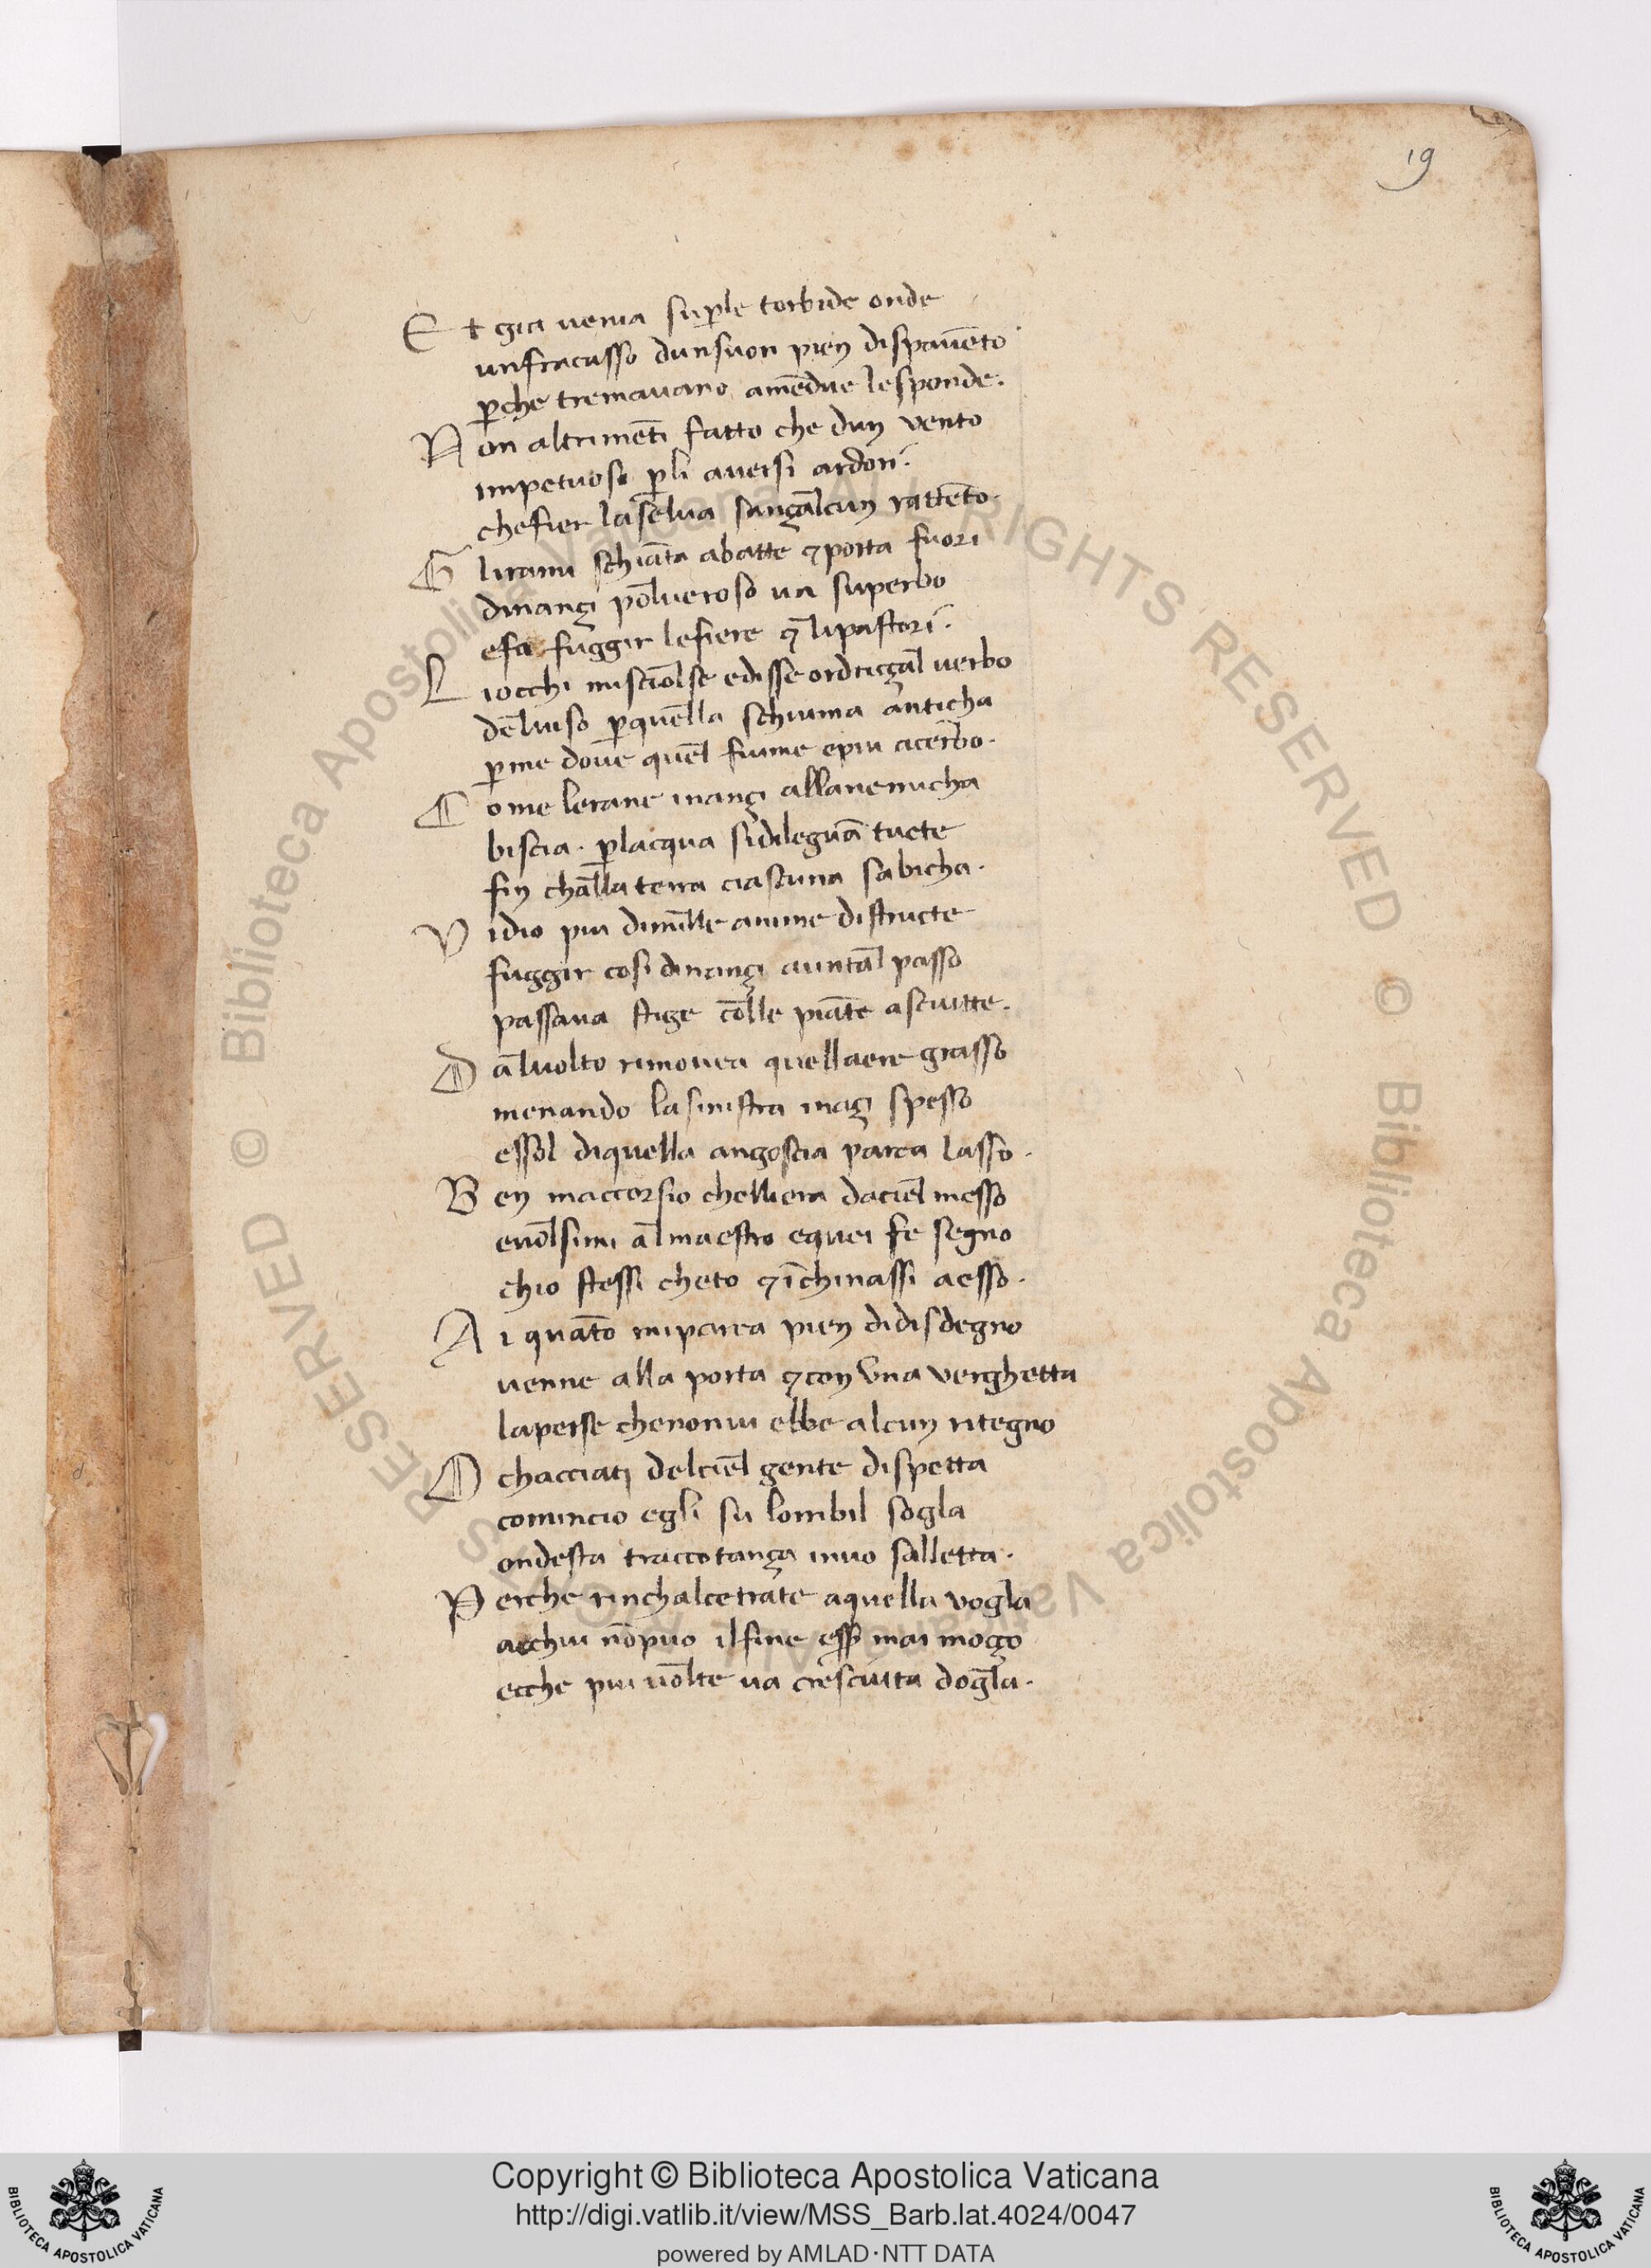 19
E t gia uenia sup̱le torbide onde
unfracasso dunsuon pien dispauēto
ꝑche tremauano amēdue lesponde.
N on altrimēti fatto che dun vento
impetuoso ꝑli auersi ardori.
chefier laselua sançalcun rattēto.
G lirami schiāta abatte ⁊porta fuori
dinançi polueroso ua superbo
efa fuggir lefiere ⁊ lipastori.
L iocchi misciolse edisse ordriçal uerbo
deluiso ꝑquella schiuma anticha
ꝑme doue quel fiume epiu acerbo.
C ome lerane inançi allanemicha
biscia. ꝑlacqua sidileguā tucte
fin challa terra ciascuna sabicha.
V idio piu dimille anime distructe
fuggir cosi dinançi auntal passo
passaua stige colle piāte asciutte.
D aluolto rimouea quellaere grasso
menando lasinistra inaçi spesso
essol diquella angoscia parea lasso.
B en maccorsio chelliera daciel messo
euolsimi al maestro equei fe segno
chio stessi cheto ⁊īchinassi aesso.
A i quāto miparea pien didisdegno
uenne alla porta ⁊con vna verghetta
laperse chenonui ebbe alcun ritegno
O chacciati delciel gente dispetta
comincio egli su lorribil sogla
ondesta traccotança inuo salletta.
P erche rinchalcetrate aquella vogla
acchui nōpuo ilfine esẜ mai moço
ecche piu uolte ua cresciuta dogla.
© Biblioteca Apostolica Vaticana ALL RIGHTS RESERVED © Biblioteca Apostolica Vaticana ALL RIGHTS RESERVED
BIBLIOTECA APOSTOLICA VATICANA
Copyright © Biblioteca Apostolica Vaticana
http://digi.vatlib.it/view/MSS_Barb.lat.4024/0047
powered by AMLAD·NTT DATA
BIBLIOTECA APOSTOLICA VATICANA